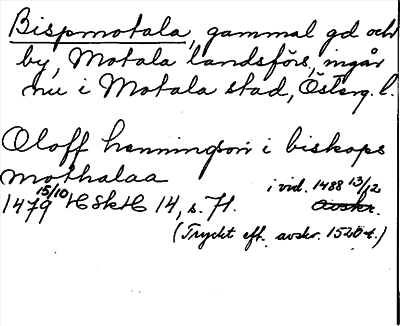 Bispmotala, gammal gd och
by, Motala landsförs, ingår
nu i Motala stad, Österg. l.
Oloff henningson i biskops
mothalaa
i vid. 1488 13/12
1479 15/10 HSkH 14, s. 71. avskr.
(Tryckt eft. avskr. 1520-t.)